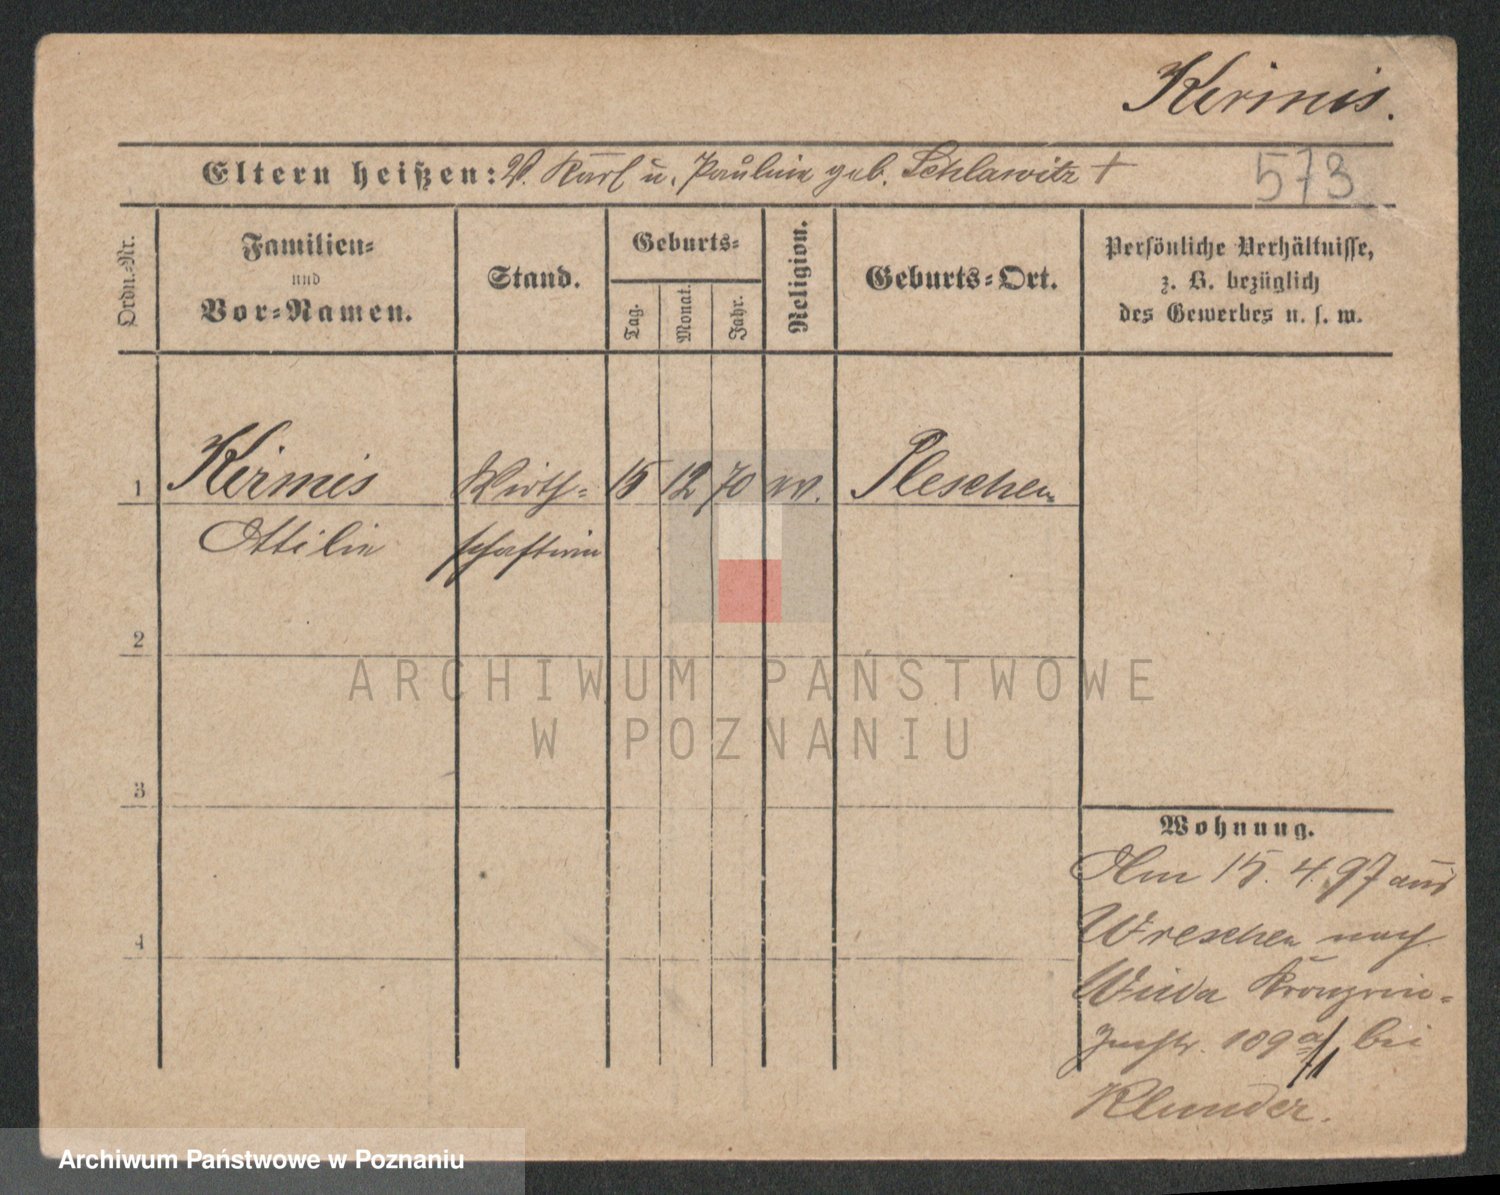 Kirmis.
Eltern heißen: V. Karl u. Pauline geb. Schlawitz +
573
Ordn.-Nr.
Familien-
und
Vor-Namen.
Stand.
Geburts-
Tag.
Monat.
Jahr.
Religion.
Geburts-Ort.
Persönliche Verhältnisse,
z. B. bezüglich
des Gewerbes u. s. w.
1 Kirmis Wirth- 15 12 70 ev. Pleschen
Ottilie schafterin
2
3
4
Wohnung.
Am 15. 4. 97 aus
Wreschen nach
Wilda Kronprin-
zenstr. 109a/1 bei
Klunder.
ARCHIWUM PAŃSTWOWE
W POZNANIU
Archiwum Państwowe w Poznaniu